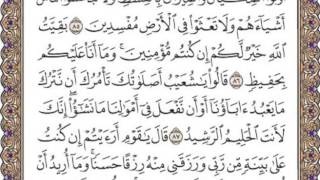 أَشْيَآءَهُمْ وَلَا تَعْثَوْا۟ فِى ٱلْأَرْضِ مُفْسِدِينَ ٨٥ بَقِيَّتُ
ٱللَّهِ خَيْرٌ لَّكُمْ إِن كُنتُم مُّؤْمِنِينَ ۚ وَمَآ أَنَا۠ عَلَيْكُم
بِحَفِيظٍ ٨٦ قَالُوا۟ يَـٰشُعَيْبُ أَصَلَوٰتُكَ تَأْمُرُكَ أَن نَّتْرُكَ
مَا يَعْبُدُ ءَابَآؤُنَآ أَوْ أَن نَّفْعَلَ فِىٓ أَمْوَٰلِنَا مَا نَشَـٰٓؤُا۟ ۖ إِنَّكَ
لَأَنتَ ٱلْحَلِيمُ ٱلرَّشِيدُ ٨٧ قَالَ يَـٰقَوْمِ أَرَءَيْتُمْ إِن كُنتُ
عَلَىٰ بَيِّنَةٍ مِّن رَّبِّى وَرَزَقَنِى مِنْهُ رِزْقًا حَسَنًا ۚ وَمَآ أُرِيدُ أَنْ